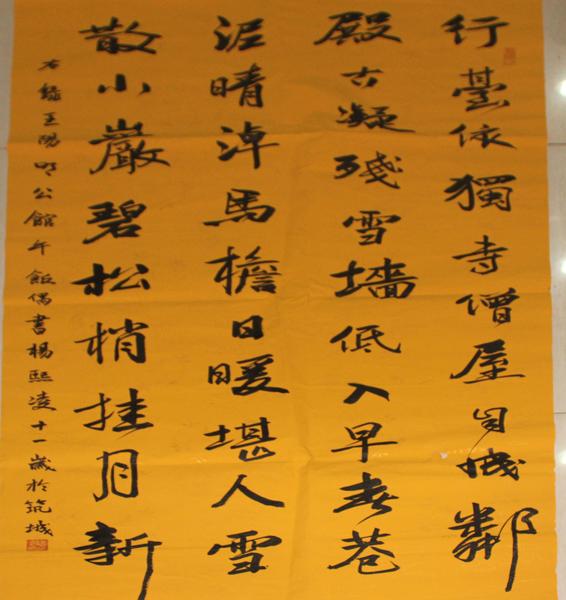 行臺依獨寺僧屋自城鄰
殿古凝殘雪墻低入早春巷
泥晴淖馬檐日暖堪人雪
散小巖碧松梢挂月新
右錄王陽明公館午飯偶書楊熙凌十一歲於筑城